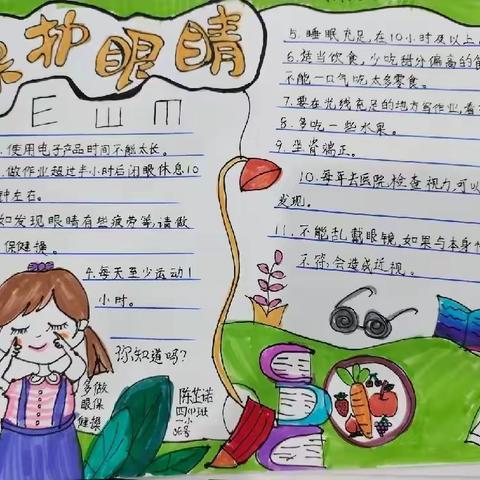 保护眼睛
E
使用电子产品时间不能太长。
做作业超过半小时后闭眼休息10
钟左右。
如发现眼睛有些疲劳等,请做
保健操。
4.每天至少运动1
小时。
你知道吗?
多做
眼保
健操
陈芷诺
5.睡眠充足,在10小时及以上
6.适当饮食,少吃甜分偏高的食
不能一口气吃太多零食。
7.要在光线充足的地方写作业,看
8.多吃一些水果。
9.坐脊端正。
10.每年去医院,检查视力,可以
发现。
11.不能乱戴眼镜,如果与本身
不符,会造成近视。